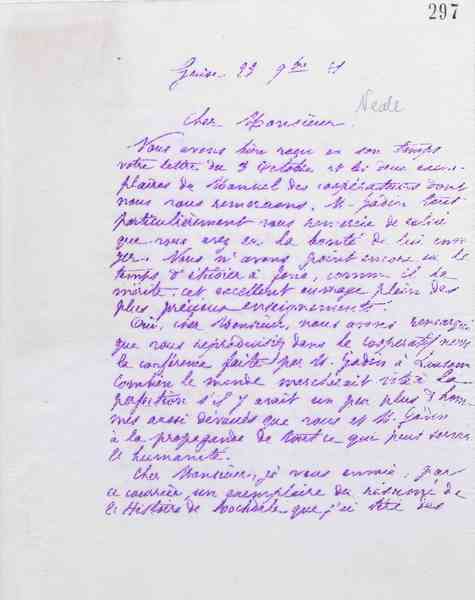 297
Guise 23 9bre 81
Neale
Cher Monsieur,
Nous avons bien reçu en son temps
votre lettre du 3 Octobre et les deux exem-
plaires du Manuel des coopérateurs dont
nous vous remercions. M. Godin tout
particulièrement vous remercie de celui
que vous avez eu la bonté de lui envo
yer. Nous n'avons point encore eu le
temps d'étudier à fond, comme il le
mérite, cet excellent ouvrage plein des
plus précieux enseignements.
Oui, cher Monsieur, nous avons remarqué
que vous reproduisiez dans le Cooperative news
la conférence faite par M. Godin à
Combien le monde marcherait vite à la
perfection s'il y avait un peu plus d'hom-
mes aussi dévoués que vous et M. Godin
à la propagande de tout ce qui peut servir
l'humanité.
Cher Monsieur, je vous envoie, par
ce courrier, un exemplaire du résumé de
l'Histoire de Rochdale que j'ai